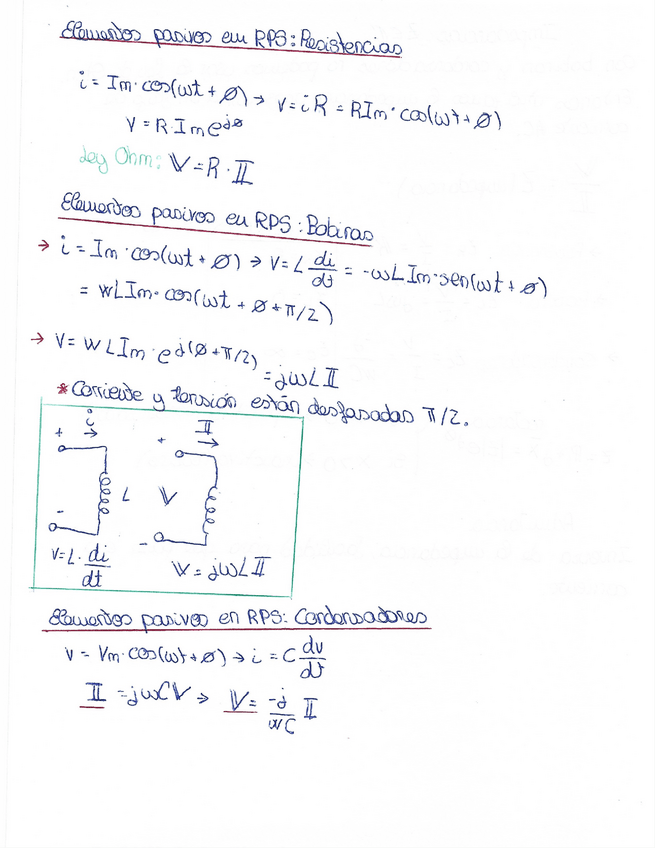 Elementos pasivos en RPS: Resistencias
i = Im·cos(ωt + ø) → v = iR = RIm·cos(ωt + ø)
V = R·Im e^jø
Ley Ohm: 𝕍 = R·𝕀
Elementos pasivos en RPS: Bobinas
→ i = Im·cos(ωt + ø) → v = L di/dt = -ωLIm·sen(ωt + ø)
= ωLIm·cos(ωt + ø + π/2)
→ V = ωLIm·e^j(ø+π/2) = jωL𝕀
* Corriente y tensión están desfasadas π/2.
i 𝕀
+ → + →
L 𝕍
- -
V = L· di/dt 𝕍 = jωL𝕀
Elementos pasivos en RPS: Condensadores
v = Vm·cos(ωt + ø) → i = C dv/dt
𝕀 = jωC𝕍 → 𝕍 = -j/ωC 𝕀